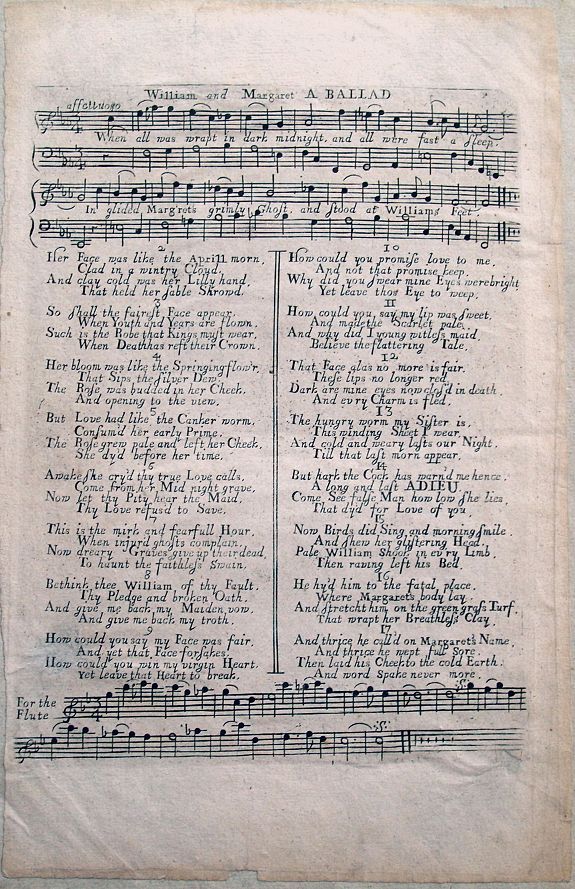 William and Margaret A BALLAD
affettuoso
When all was wrapt in dark midnight, and all were fast a ſleep.
In glided Marg'rets grimly Ghoſt, and ſtood at Williams Feet.
2
Her Face was like the Aprill morn,
Clad in a wintry Cloud,
And clay cold was her Lilly hand,
That held her ſable Shrowd.
So ſhall the faireſt Face appear,
When Youth and Years are flown,
Such is the Robe that Kings muſt wear,
When Death has reft their Crown.
4
Her bloom was like the Springing flow'r,
That Sips the Silver Dew,
The Roſe was budded in her Cheek,
And opening to the view.
5
But Love had like the Canker worm,
Conſum'd her early Prime,
The Roſe grew pale and left her Cheek,
She dy'd before her time.
6
Awake ſhe cry'd thy true Love calls,
Come from h'r Mid night grave,
Now let thy Pity hear the Maid,
Thy Love refus'd to Save.
7
This is the mirk and fearfull Hour,
When injur'd ghoſts complain,
Now dreary Graves give up their dead,
To haunt the faithleſs Swain.
8
Bethink thee William of thy Fault,
Thy Pledge and broken Oath,
And give me back my Maiden vow,
And give me back my troth.
9
How could you say my Face was fair,
And yet that Face forſake,
How could you win my virgin Heart,
Yet leave that Heart to break.
10
How could you promiſe love to me,
And not that promiſe keep,
Why did you ſwear mine Eyes were bright
Yet leave thoſe Eye to weep.
11
How could you say my lip was ſweet,
And made the Scarlet pale,
And why did I young witleſs maid
Believe the flattering Tale.
12
That Face alas no more is fair,
Theſe lips no longer red,
Dark are mine eyes now cloſ'd in death
And ev'ry Charm is fled.
13
The hungry worm my Siſter is,
This winding Sheet I wear,
And cold and weary laſts our Night,
Till that laſt morn appear.
14
But hark the Cock has warn'd me hence,
A long and laſt ADIEU
Come See falſe Man how low ſhe lies
That dy'd for Love of you.
15
Now Birds did Sing and morning ſmile
And ſhew her gliſtering Head,
Pale William Shook in ev'ry Limb,
Then raving left his Bed.
16
He hy'd him to the fatal place,
Where Margaret's body lay.
And ſtretcht him on the green graſs Turf,
That wrapt her Breathleſs Clay.
17
And thrice he call'd on Margaret's Name,
And thrice he wept full Sore.
Then laid his Cheek to the cold Earth.
And word Spake never more.
For the
Flute